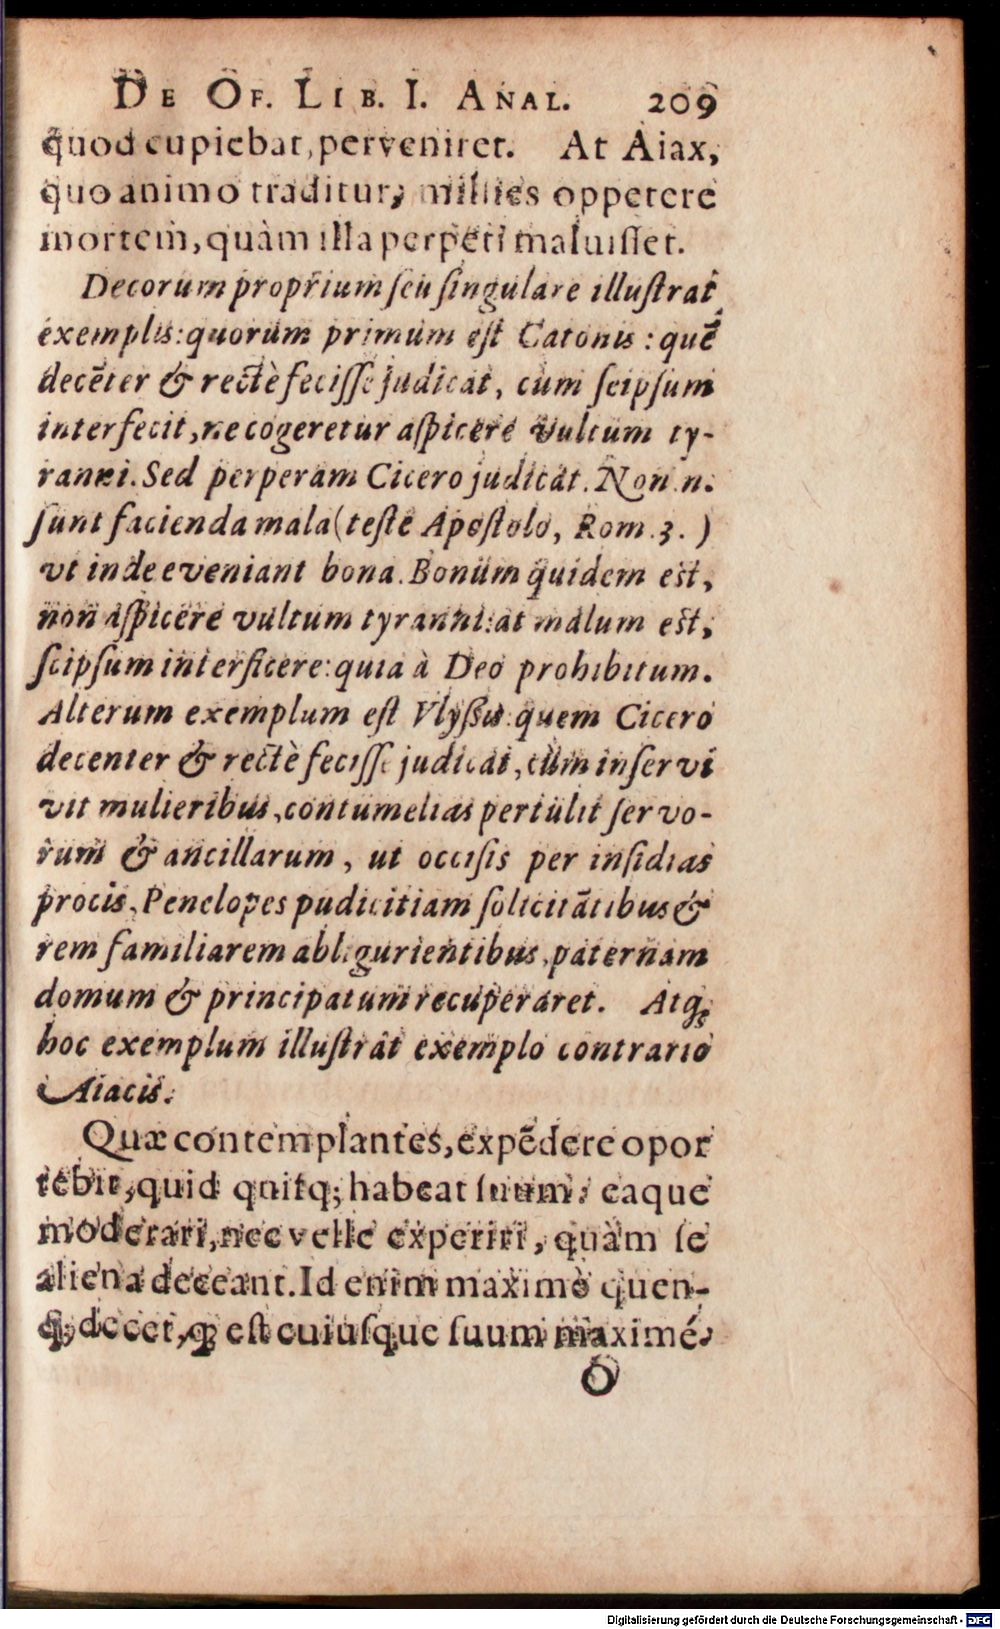 De Of. Lib. I. Anal. 209
quod cupiebat, perveniret. At Aiax,
quo animo traditur, millies oppetere
mortem, quàm illa perpeti maluisset.
Decorum proprium seu singulare illustrat
exemplis: quorum primum est Catonis: quē
decēter & rectè fecisse judicat, cum seipsum
interfecit, ne cogeretur aspicere vultum ty-
ranni. Sed perperam Cicero judicat. Non n.
sunt facienda mala (teste Apostolo, Rom. 3. )
ut inde eveniant bona. Bonum quidem est,
non aspicere vultum tyranni: at malum est,
seipsum interficere: quia à Deo prohibitum.
Alterum exemplum est Vlyßis: quem Cicero
decenter & rectè fecisse judicat, cùm inservi
vit mulieribus, contumelias pertulit servo-
rum & ancillarum, ut occisis per insidias
procis, Penelopes pudicitiam solicitātibus &
rem familiarem abligurientibus, paternam
domum & principatum recuperaret. Atq;
hoc exemplum illustrat exemplo contrario
Aiacis.
Quæ contemplantes, expēdere opor
tebit, quid quisq; habeat suum: eaque
moderari, nec velle experiri, quàm se
aliena deceant. Id enim maximè quen-
q; decet, qꝫ est cuiusque suum maximé.
O
Digitalisierung gefördert durch die Deutsche Forschungsgemeinschaft - DFG